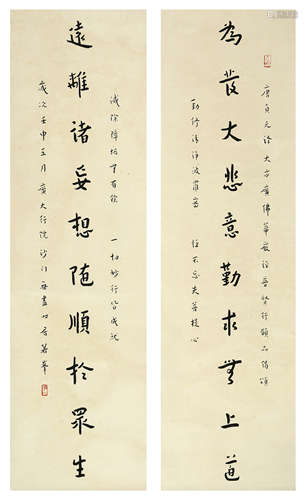 唐貞元譯大方廣佛華嚴經普賢行願品偈頌
為發大悲意勤求無上道
勤修清淨波羅蜜 恒不忘失菩提心
滅除障垢無有餘 一切妙行皆成就
遠離諸妄想隨順於眾生
歲次壬申三月廣大行院沙門